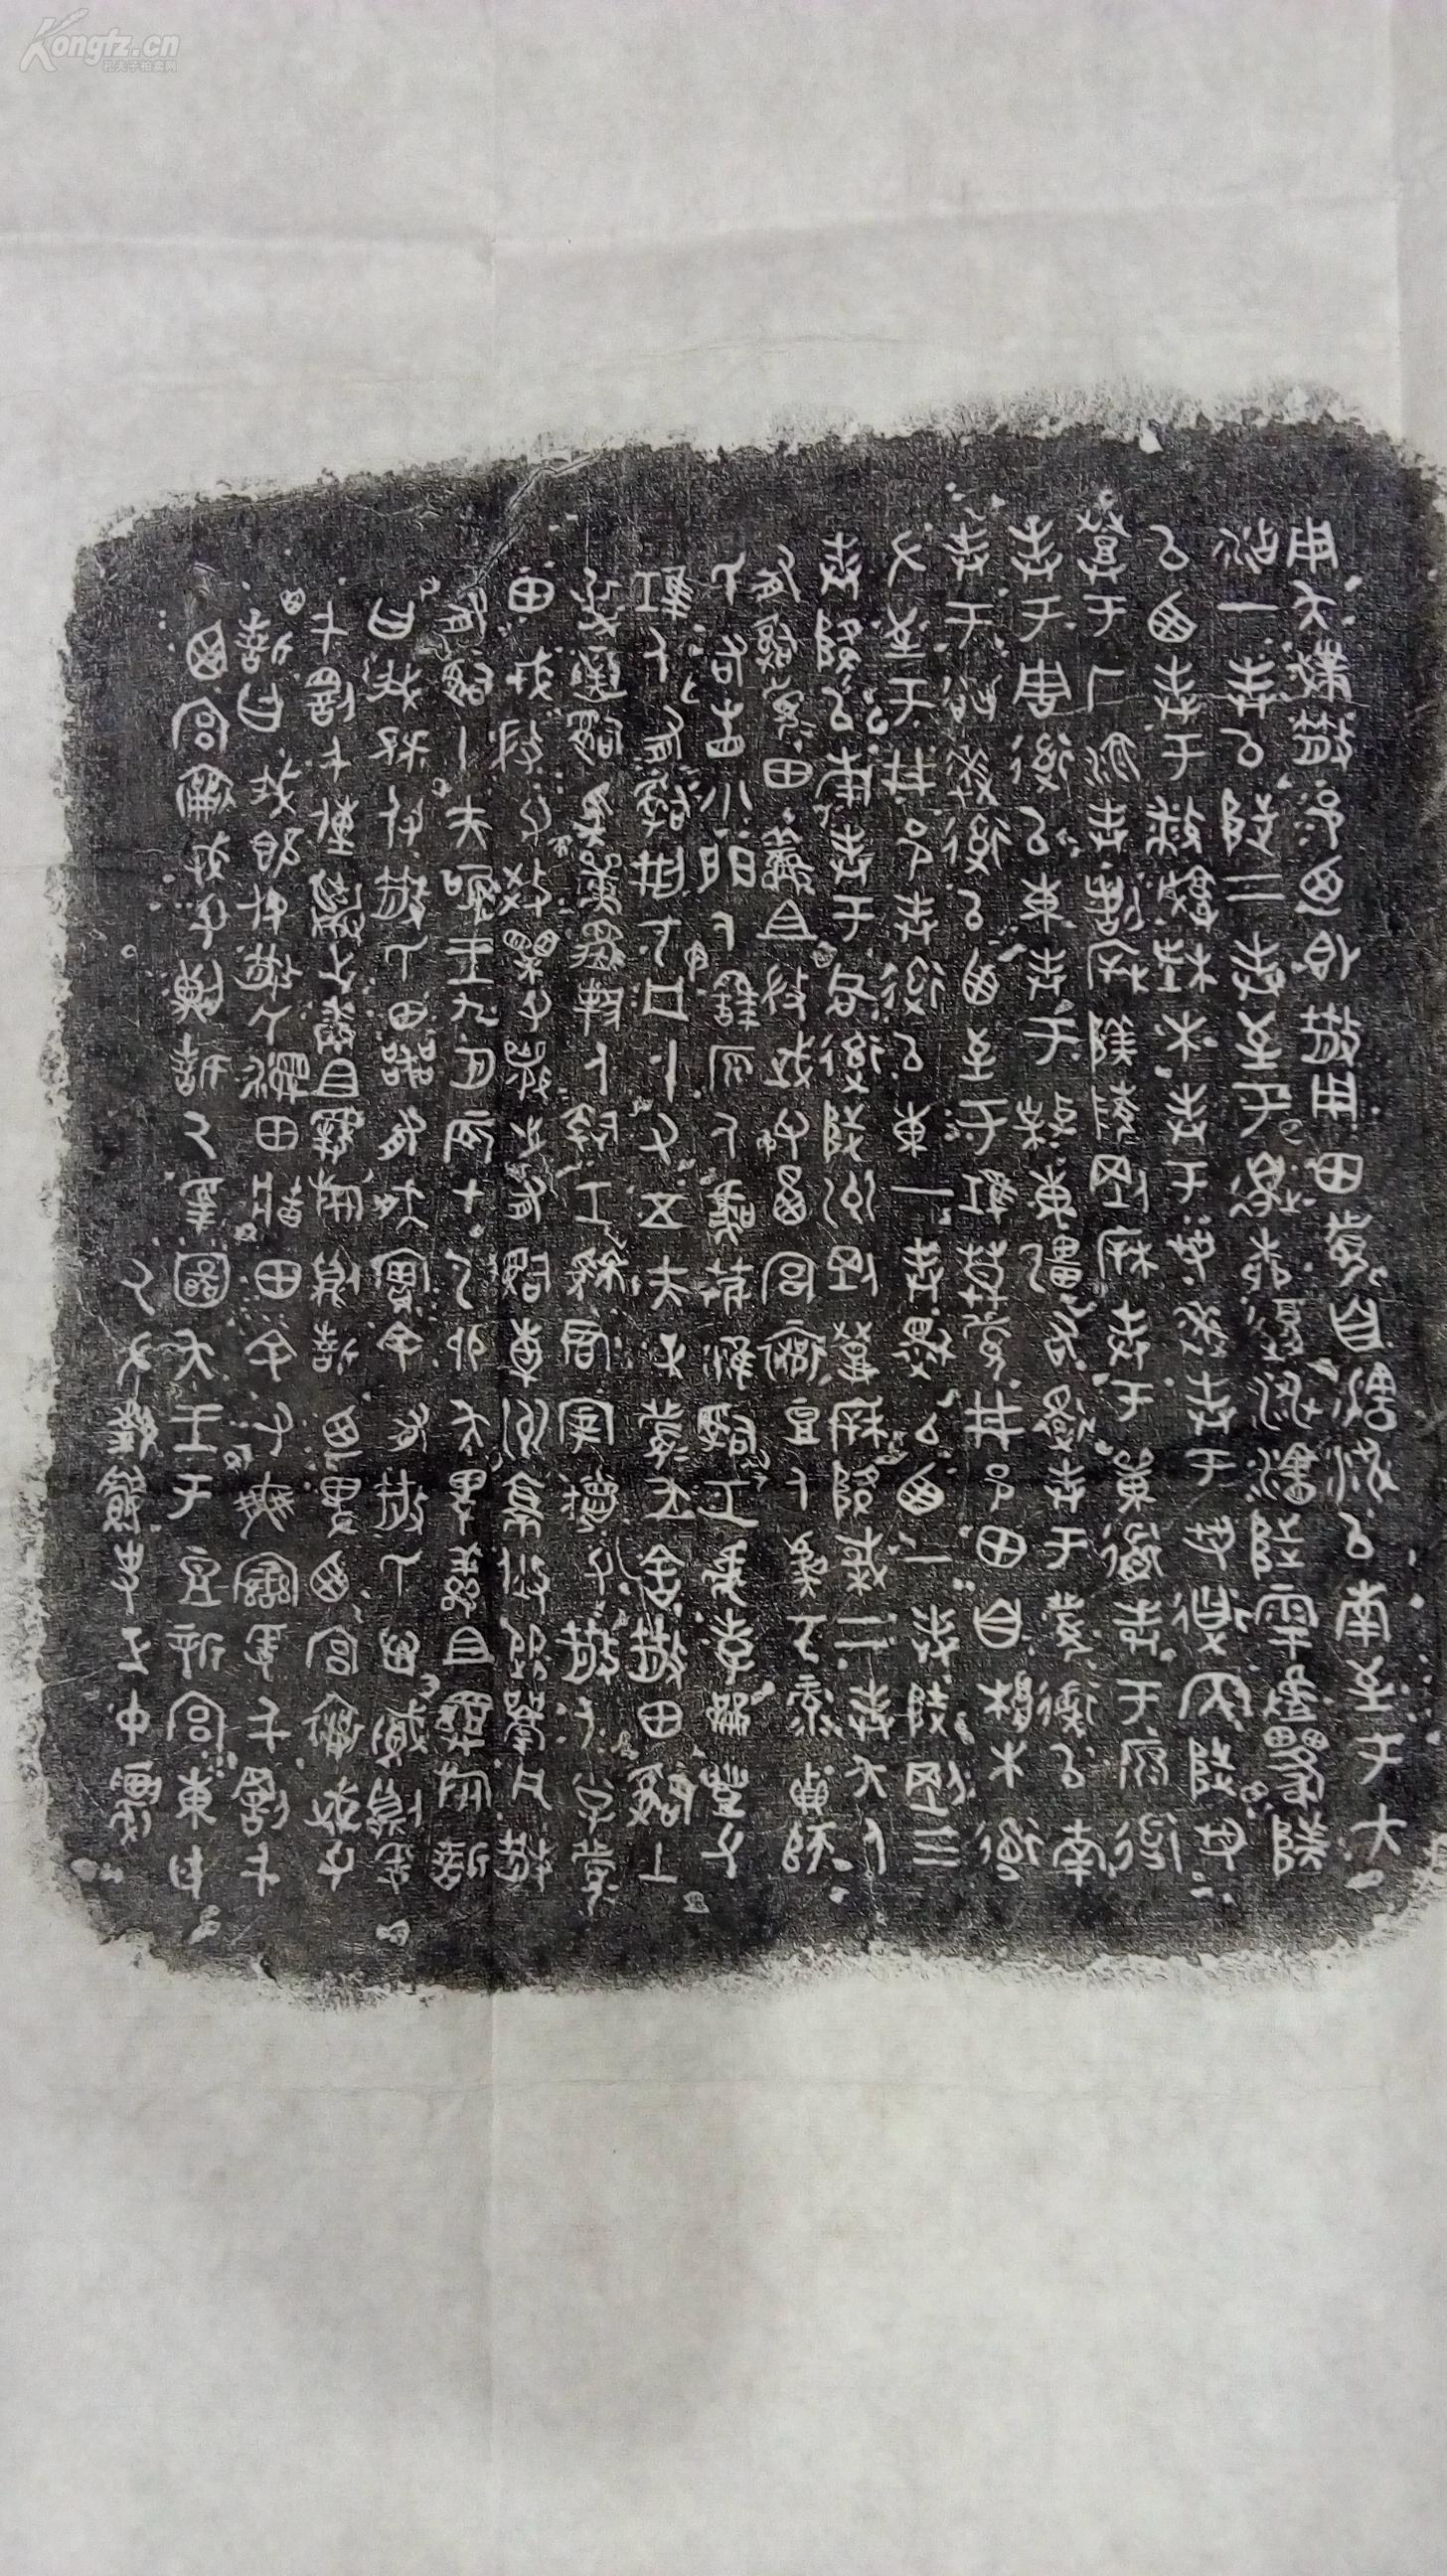 用夨𢦏散邑乃即散用田眉自瀗涉以南至于大
沽一封以陟二封至于邊柳復涉瀗陟雩𠭯𨺅
以西封于播城楮木封于芻逨封于芻道内陟芻
登于厂湶封割柝陵剛柝封于道封于原道
封于周道以東封于棹東疆右還封于眉道以南
封于逨道以西至于𨾊莫眉井邑田自桹木道
左至于井邑封道以東一封還以西一封陟剛三
封降以南封于同道陟州剛登柝降棫二封夨人
有𤔲眉田鮮且微武父西宮襄豆人虞丂彔貞師
氏右眚小門人繇原人虞艿淮𤔲工虎孝豐父
人有𤔲刑丂凡十又五夫正眉夨舍散田𤔲土
逆寅𤔲馬單邦人𤔲工君宰德父散人小子眉
田戎微父效父襄之有𤔲橐州攸從鬲凡散
有𤔲十夫唯王九月辰才乙卯夨卑鮮且旅誓
曰我既付散氏田器有爽實余有散氏心賊則爰
千罰千傳棄之鮮且旅則誓乃卑西宮襄武父
誓曰我既付散氏溼田田余又爽變爰千罰千
西宮襄武父則誓厥受圖夨王于豆新宮東廷
厥左執史正中農